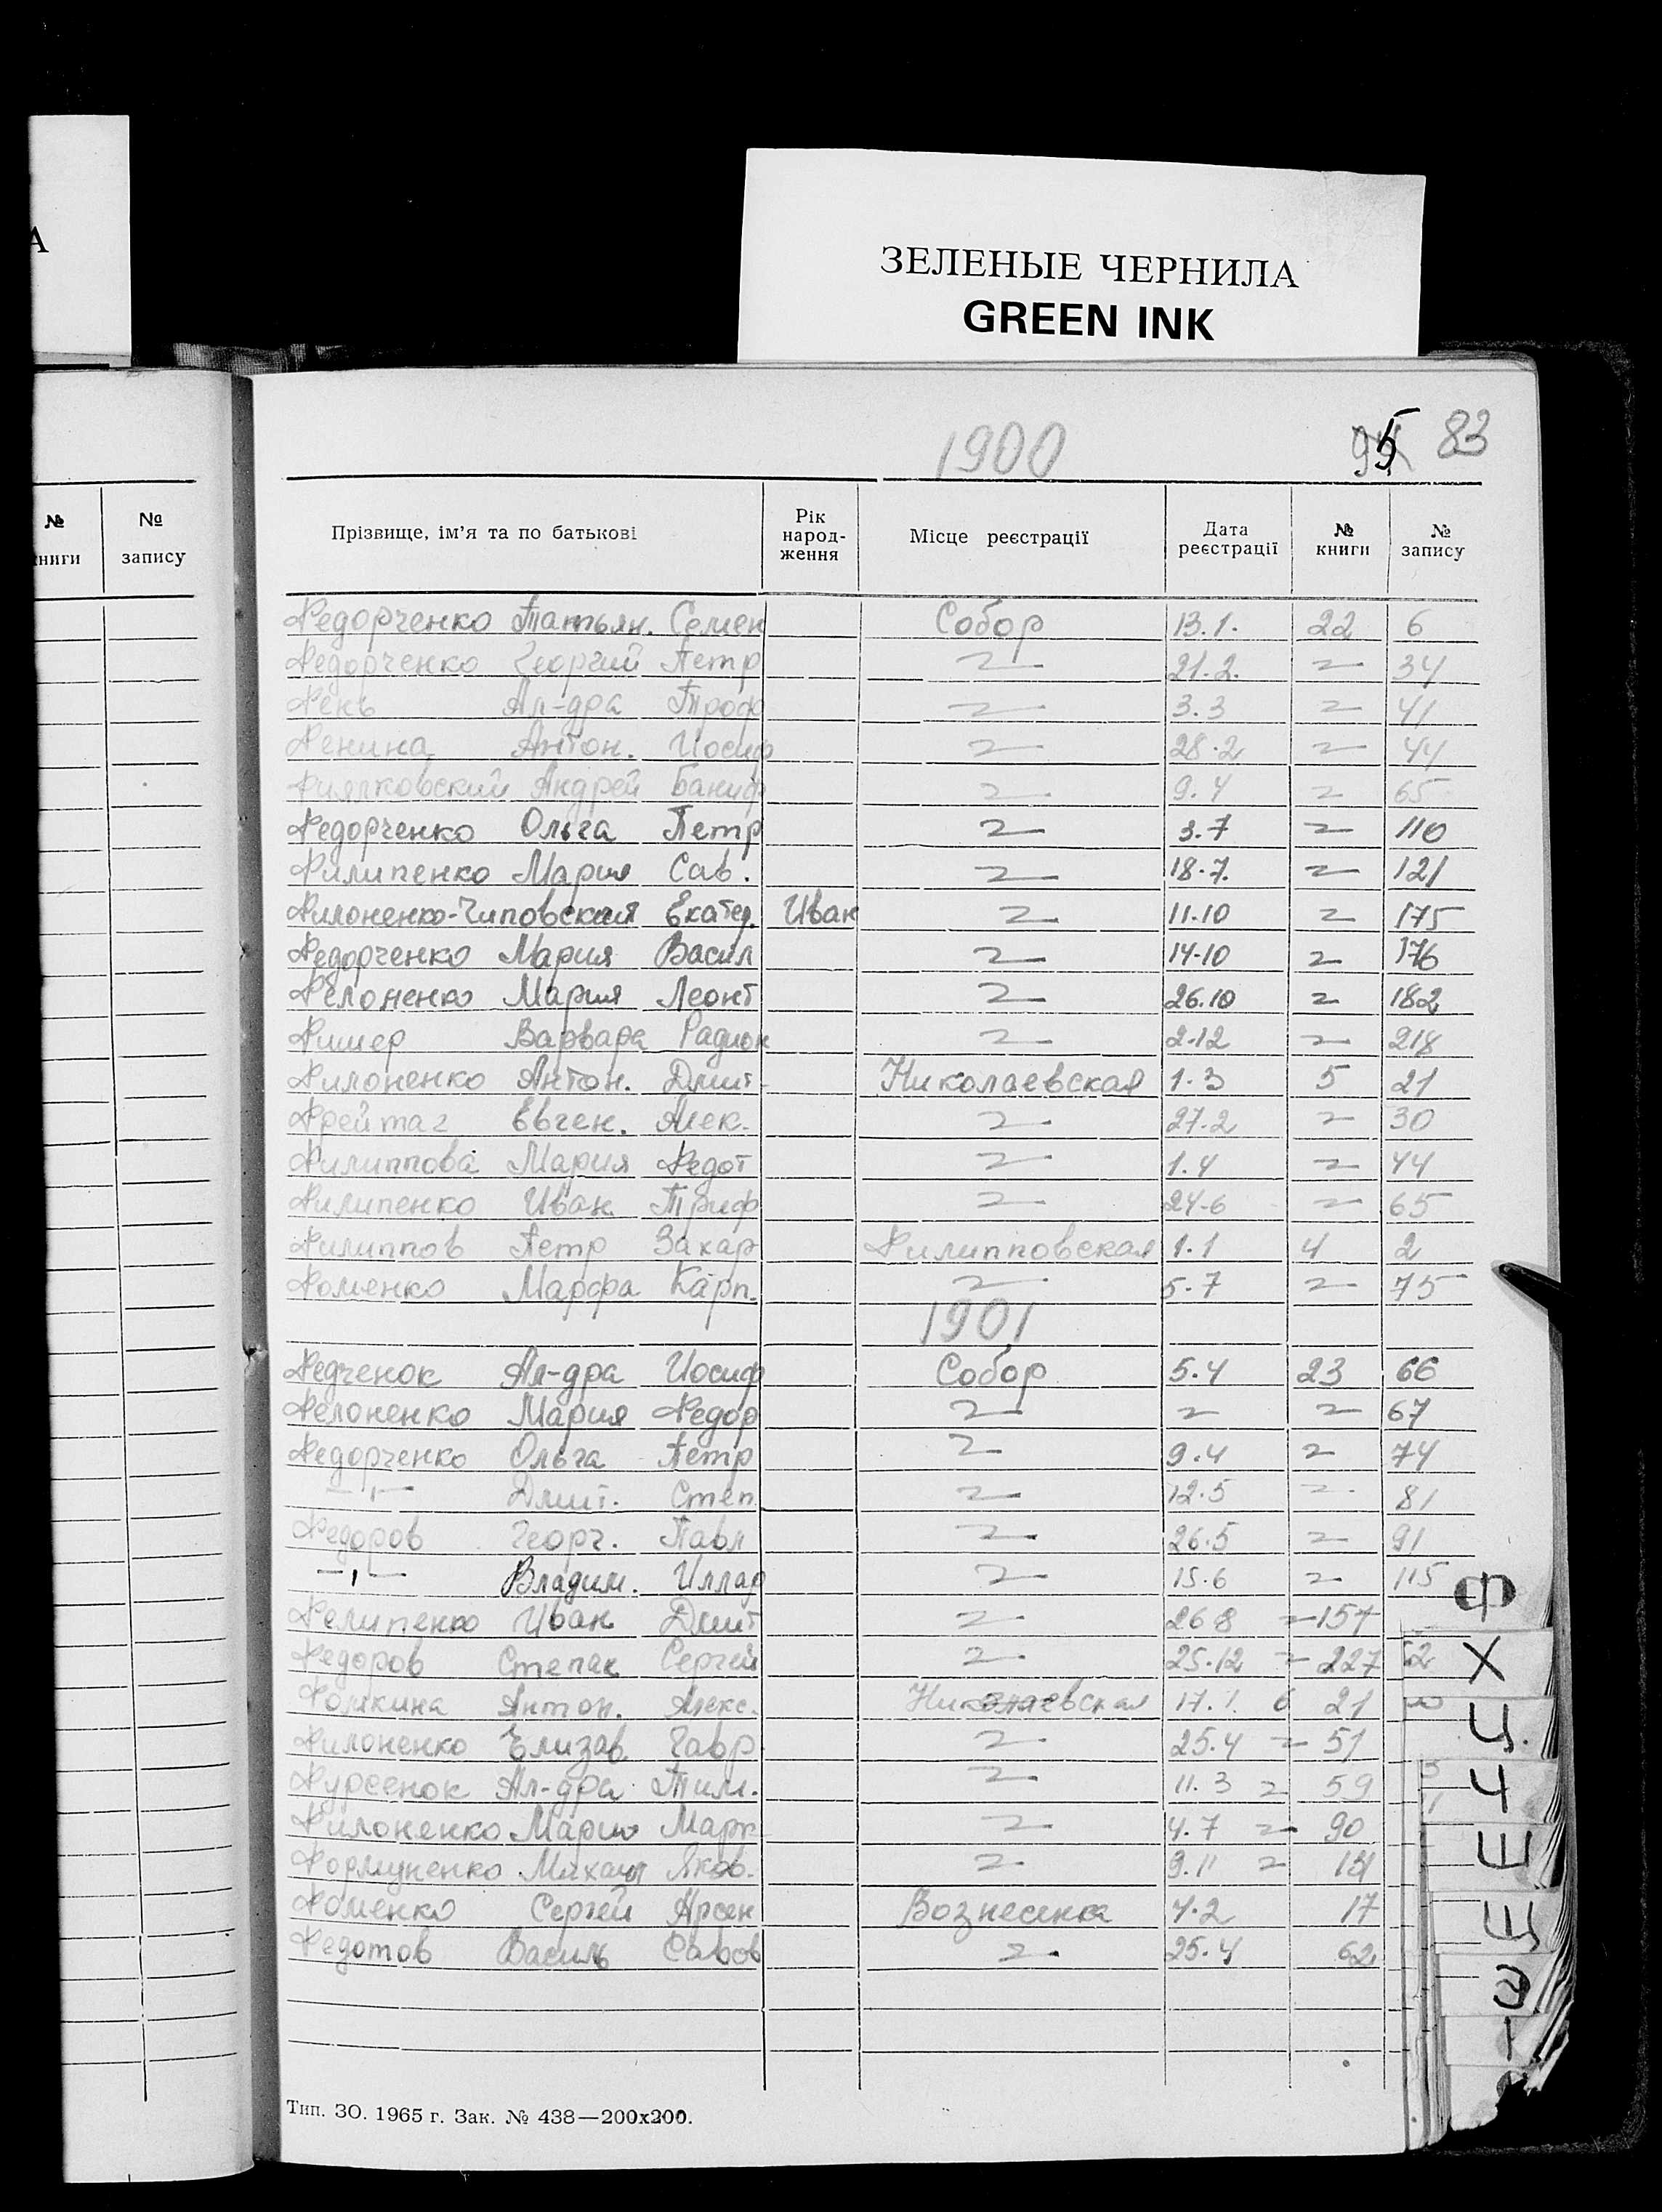 А
ЗЕЛЕНЫЕ ЧЕРНИЛА
GREEN INK
1900 5 83
№ книги № запису
Прізвище, ім'я та по батькові Рік народ-ження Місце реєстрації Дата реєстрації № книги № запису
Федорченко Татьян. Семен Собор 13.1. 22 6
Федорченко Георгий Петр 〃 21.2. 〃 34
Фень Ал-дра Троф 〃 3.3 〃 41
Фенина Антон. Иосиф 〃 28.2 〃 44
Фиялковский Андрей Баниф 〃 9.4 〃 65
Федорченко Ольга Петр 〃 3.7 〃 110
Филипенко Мария Сав. 〃 18.7. 〃 121
Филоненко-Чиповская Екатер. Иван 〃 11.10 〃 175
Федорченко Мария Васил 〃 14.10 〃 176
Фелоненко Мария Леонт 〃 26.10 〃 182
Фишер Варвара Радион 〃 2.12 〃 218
Филоненко Антон. Дмит. Николаевская 1.3 5 21
Фрейтаг Евген. Алек. 〃 27.2 〃 30
Филиппова Мария Федот 〃 1.4 〃 44
Филипенко Иван Триф 〃 24.6 〃 65
Филиппов Петр Захар Филипповская 1.1 4 2
Фоменко Марфа Карп. 〃 5.7 〃 75
1901
Федченок Ал-дра Иосиф Собор 5.4 23 66
Фелоненко Мария Федор 〃 〃 〃 67
Федорченко Ольга Петр 〃 9.4 〃 74
—〃— Дмит. Степ. 〃 12.5 〃 81
Федоров Георг. Павл 〃 26.5 〃 91
—〃— Владим. Иллар 〃 15.6 〃 115
Фелипенко Иван Дмит 〃 26.8 〃 157
Федоров Степан Сергей 〃 25.12 〃 227
Фомкина Антон. Алекс. Николаевская 17.1. 6 21
Филоненко Елизав Гавр 〃 25.4 〃 51
Фурсенок Ал-дра Тим. 〃 11.3 〃 59
Филоненко Мария Марк 〃 4.7 〃 90
Формуненко Михаил Яков. 〃 9.11 〃
Фоменко Сергей Арсен Вознесенка 7.2 17
Федотов Василь Савов 〃 25.4 62
Ф
Х
Ц.
Ч
Ш
Щ
Э
Тип. ЗО. 1965 г. Зак. № 438—200х200.